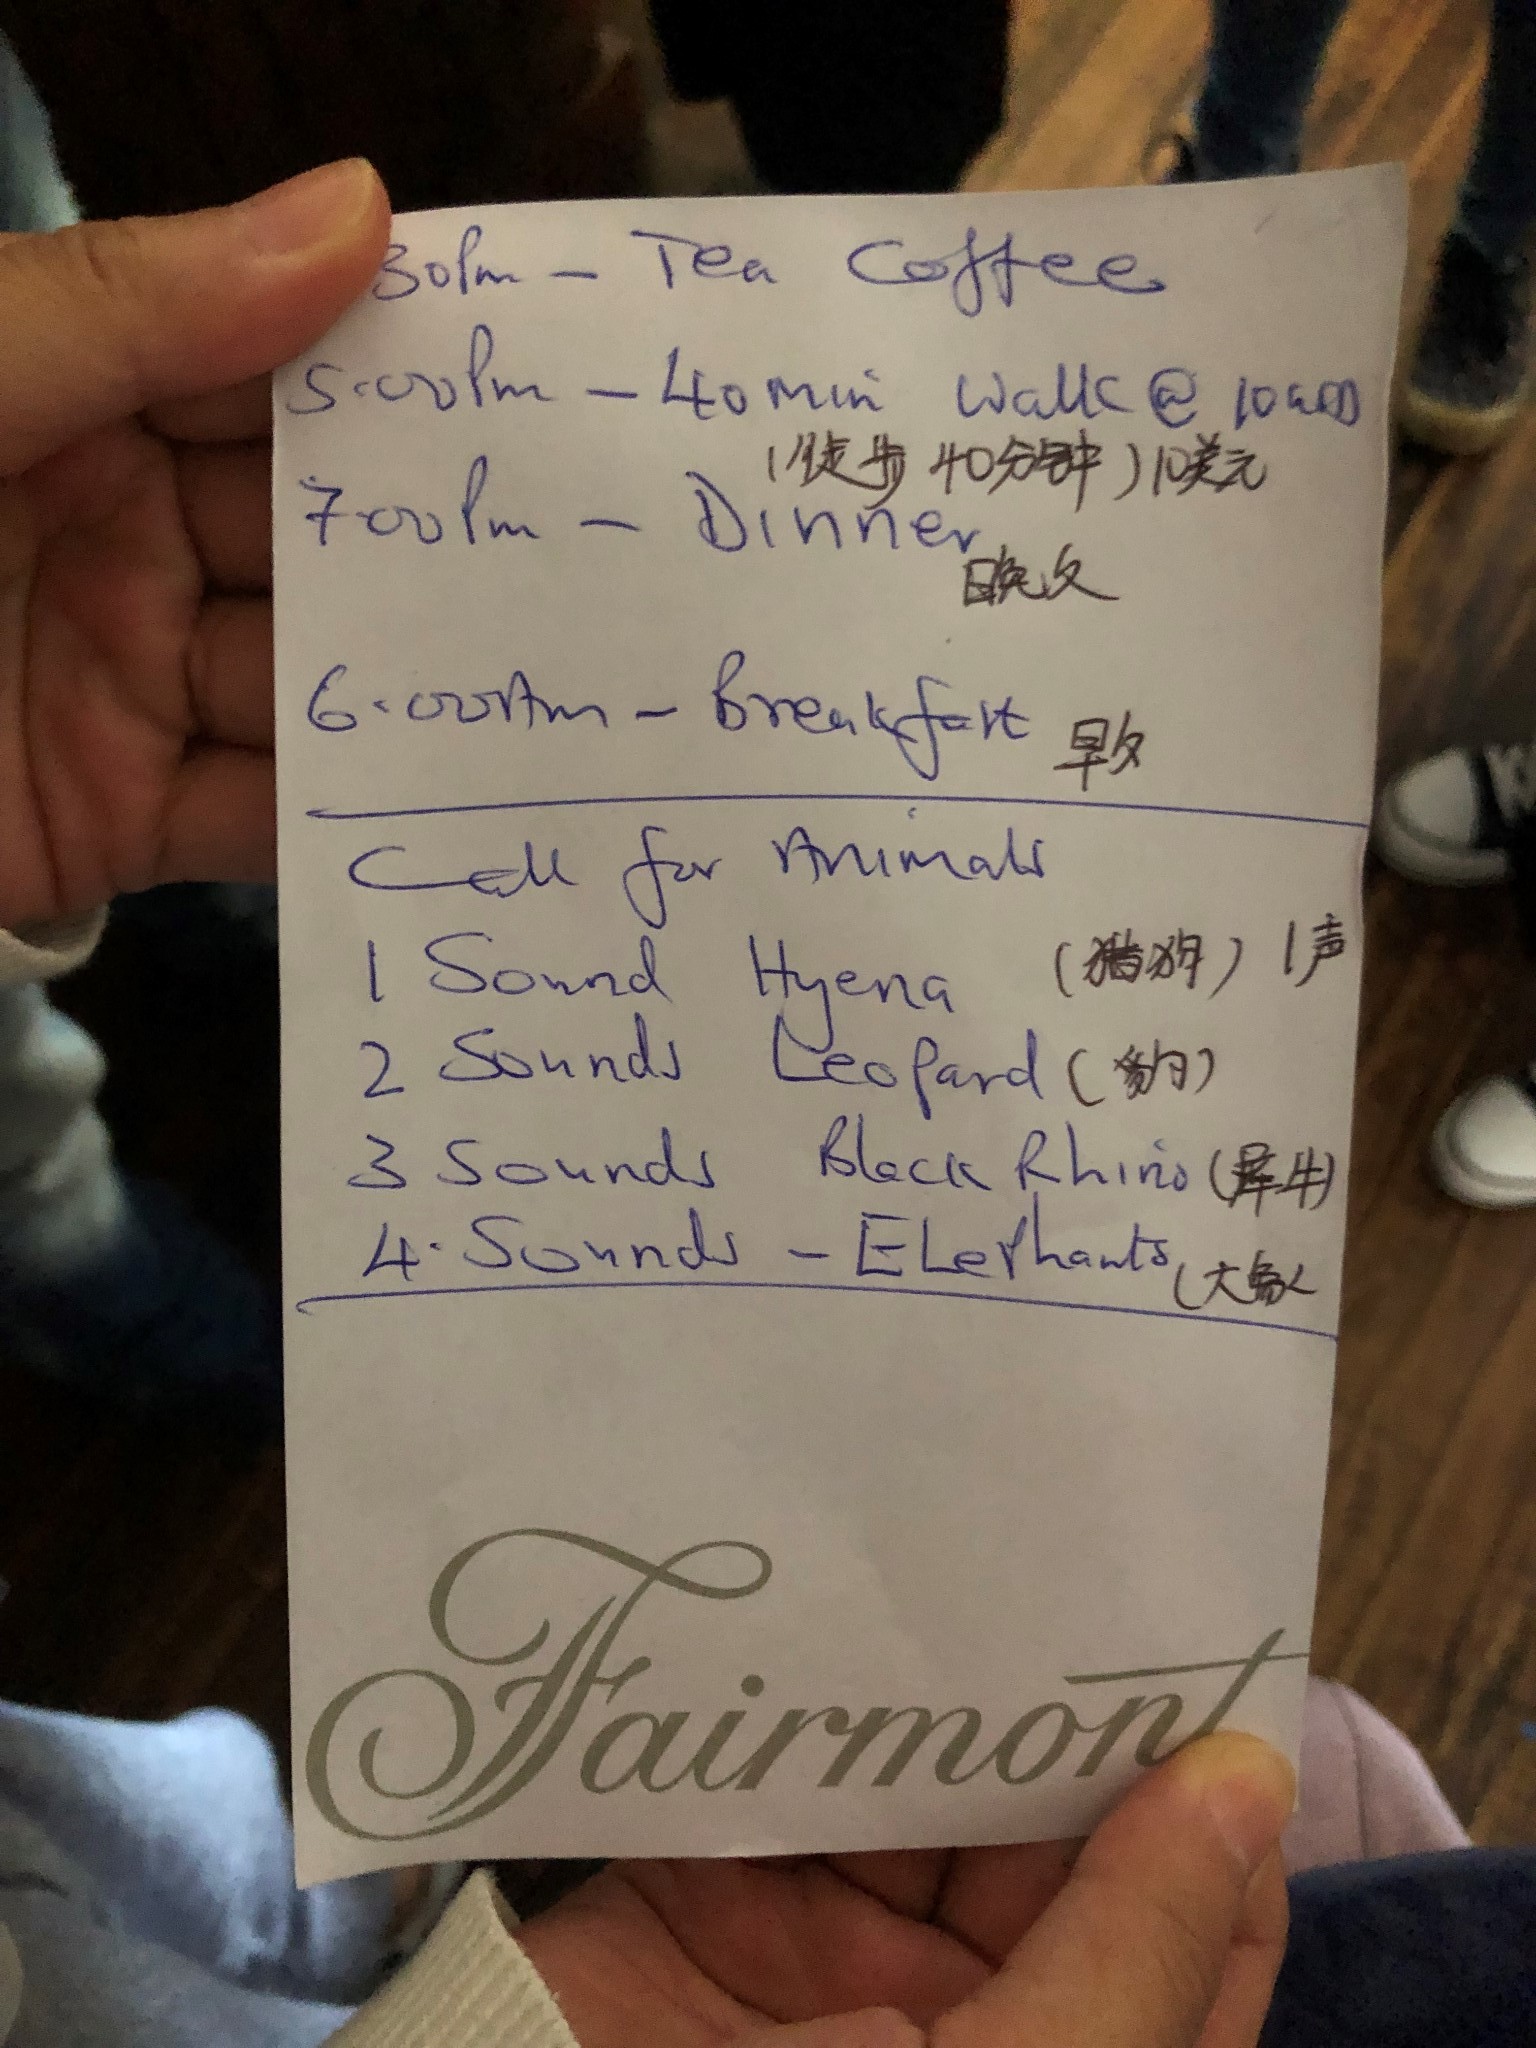 30Pm - Tea Coffee
5.00Pm - 40min walk @ 10USD
(徒步 40分钟) 10美元
7.00Pm - Dinner
晚夂
6.00Am - Breakfast 早夂
Call for Animals
1 Sound Hyena (猎狗) 1声
2 Sounds Leopard (豹)
3 Sounds Black Rhino (犀牛)
4. Sounds - ELephants (大象
Fairmont